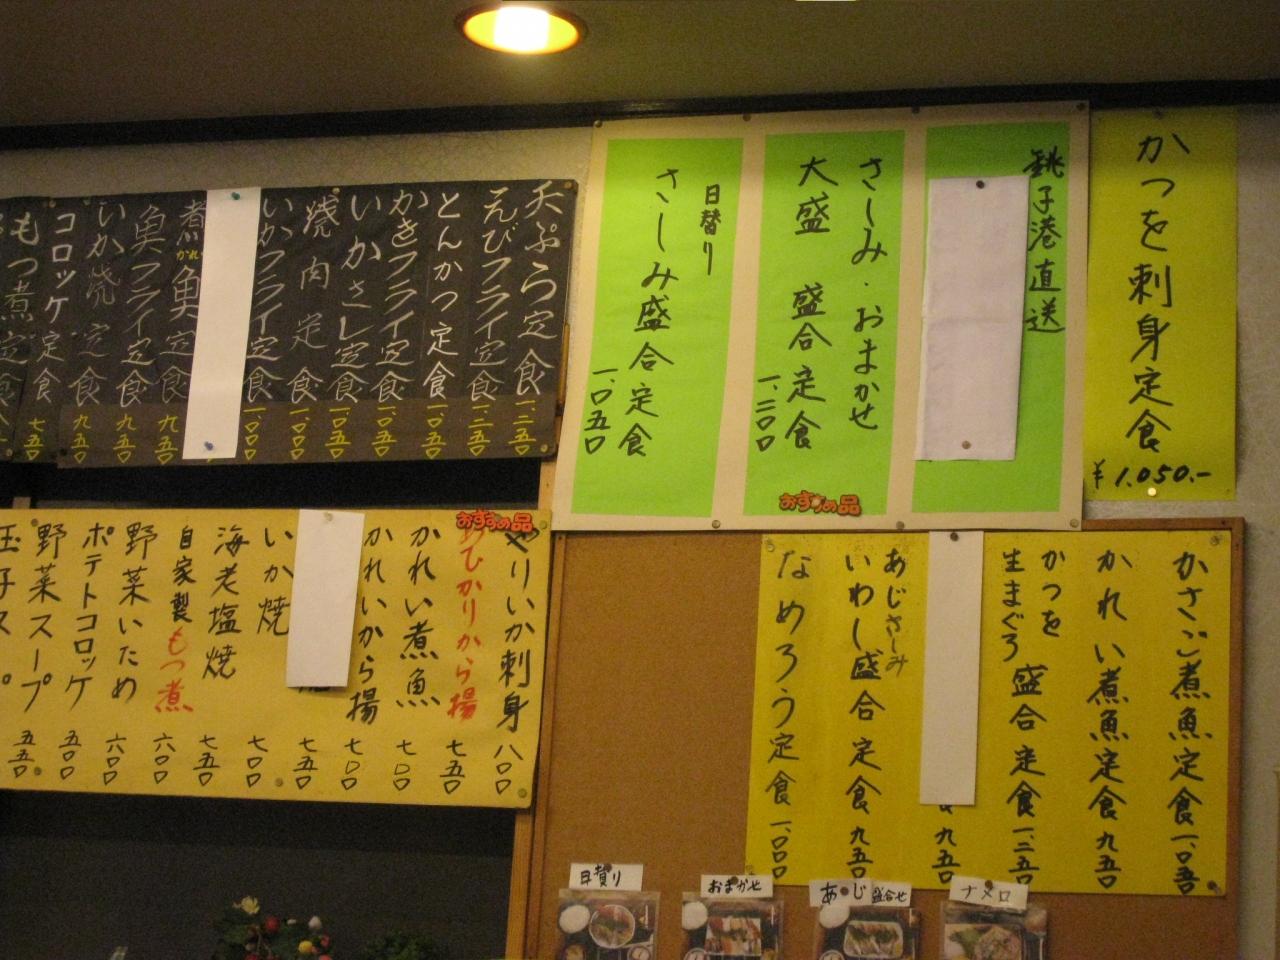 かつを刺身定食
¥1.050.-
銚子港直送
さしみ・おまかせ
大盛 盛合定食
一、三〇〇
おすすめ品
日替り
さしみ盛合定食
一、〇五〇
天ぷら定食 一、二五〇
えびフライ定食 一、二五〇
とんかつ定食 一、〇五〇
かきフライ定食 一、〇五〇
いかさし定食 一、〇五〇
焼肉定食 一、〇〇〇
いかフライ定食 一、〇〇〇
煮魚定食 九五〇
かれい
魚フライ定食 九五〇
いか焼定食 九五〇
コロッケ定食 七五〇
もつ煮定食
かさご煮魚定食 一、〇五〇
かれい煮魚定食 九五〇
かつを
生まぐろ
盛合定食 一、二五〇
食 九五〇
あじさしみ
いわし盛合定食 九五〇
なめろう定食 一、〇〇〇
おすすめ品
やりいか刺身 八〇〇
めひかりから揚 七五〇
かれい煮魚 七〇〇
かれいから揚 七〇〇
七五〇
いか焼 七〇〇
海老塩焼 七五〇
自家製もつ煮 六〇〇
野菜いため 六〇〇
ポテトコロッケ 五〇〇
野菜スープ 五五〇
玉子スープ
日替り
おまかせ
あじ盛合せ
ナメロ